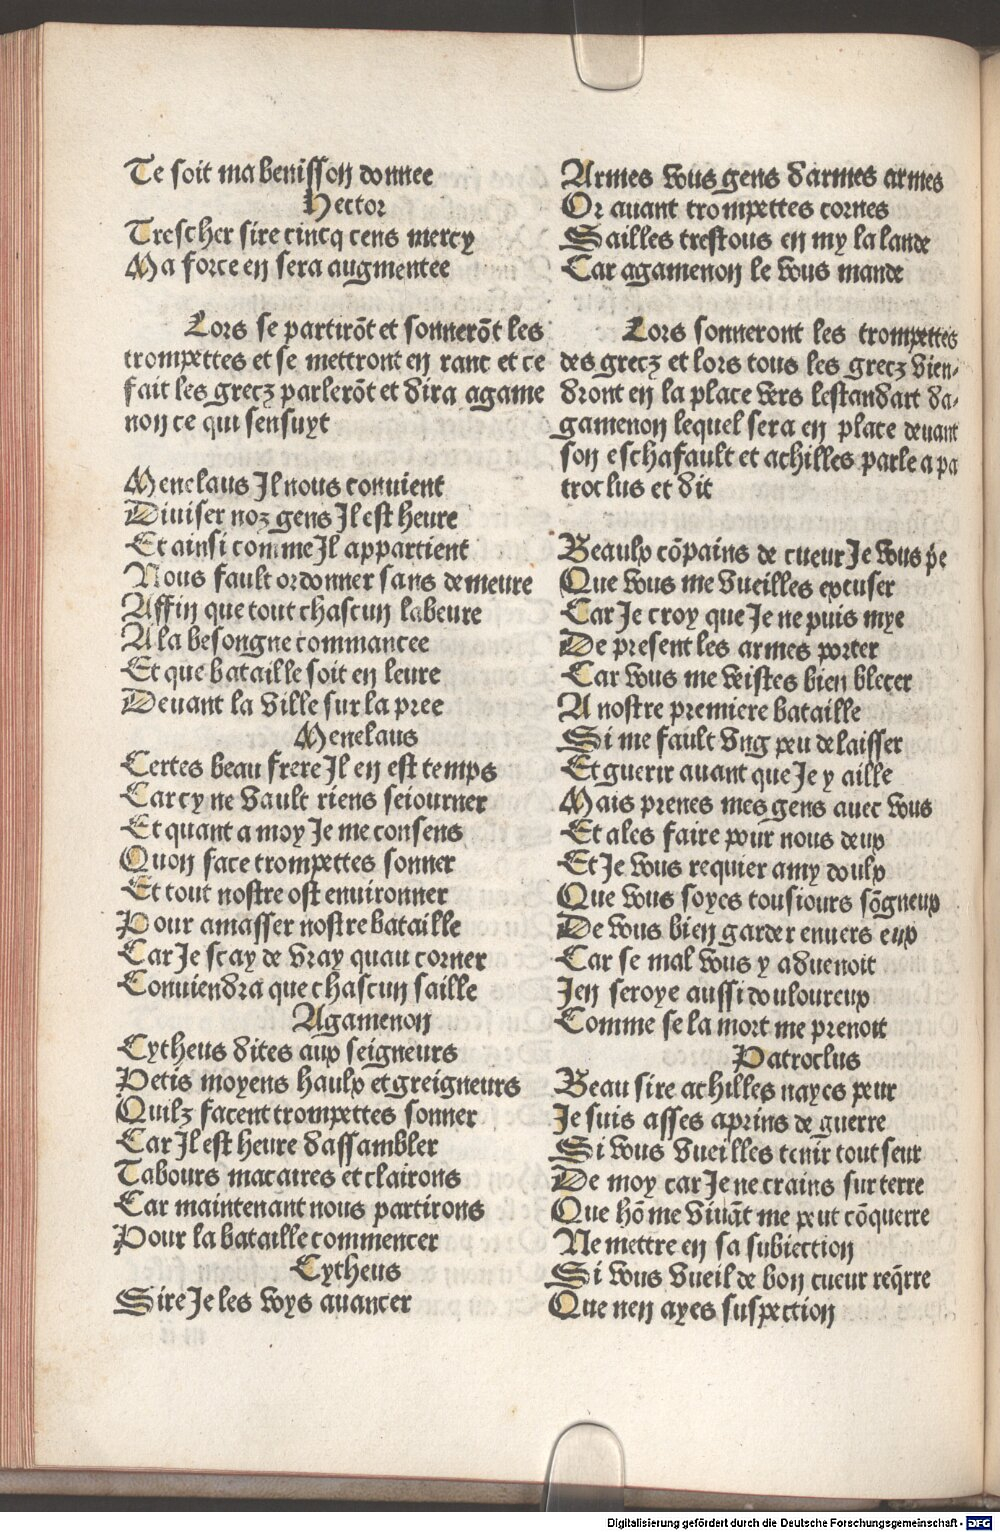 Te soit ma benisson donnee
Hector
Trescher sire cincq cens mercy
Ma force en sera augmentee
Lors se partirõt et sonnerõt les
trompettes et se mettront en ranc et ce
fait les grecz parlerõt et dira agame
non ce qui sensuyt
Menelaus Il nous conuient
Diuiser noz gens Il est heure
Et ainsi comme Il appartient
Nous fault ordonner sans demeure
Affin que tout chascun labeure
A la besongne commancee
Et que bataille soit en leure
Deuant la ville sur la pree
Menelaus
Certes beau frere Il en est temps
Car cy ne vault riens seiourner
Et quant a moy Je me consens
Quon face trompettes sonner
Et tout nostre ost enuironner
Pour amasser nostre bataille
Car Je scay de vray quau corner
Conuiendra que chascun saille
Agamenon
Cytheus dites aux seigneurs
Petis moyens haulx et greigneurs
Quilz facent trompettes sonner
Car Il est heure dassambler
Tabours macaires et clairons
Car maintenant nous partirons
Pour la bataille commencer
Cytheus
Sire Je les voys auancer
Armes vous gens darmes armes
Or auant trompettes cornes
Sailles trestous en my la lande
Car agamenon le vous mande
Lors sonneront les trompettes
des grecz et lors tous les grecz vien-
dront en la place vers lestandart da-
gamenon lequel sera en place deuant
son eschafault et achilles parle a pa
troclus et dit
Beaulx cõpains de cueur Je vous p̃e
Que vous me vueilles excuser
Car Je croy que Je ne puis mye
De present les armes porter
Car vous me veistes bien blecer
A nostre premiere bataille
Si me fault vng peu delaisser
Et guerir auant que Je y aille
Mais prenes mes gens auec vous
Et ales faire pour nous deux
Et Je vous requier amy doulx
Que vous soyes tousiours sõgneux
De vous bien garder enuers eux
Car se mal vous y aduenoit
Jen seroye aussi douloureux
Comme se la mort me prenoit
Patroclus
Beau sire achilles nayes peur
Je suis asses aprins de guerre
Si vous vueilles tenir tout seur
De moy car Je ne crains sur terre
Que hõme viuãt me peut cõquerre
Ne mettre en sa subiection
Si vous vueil de bon cueur req̃rre
Que nen ayes suspection
Digitalisierung gefördert durch die Deutsche Forschungsgemeinschaft - DFG